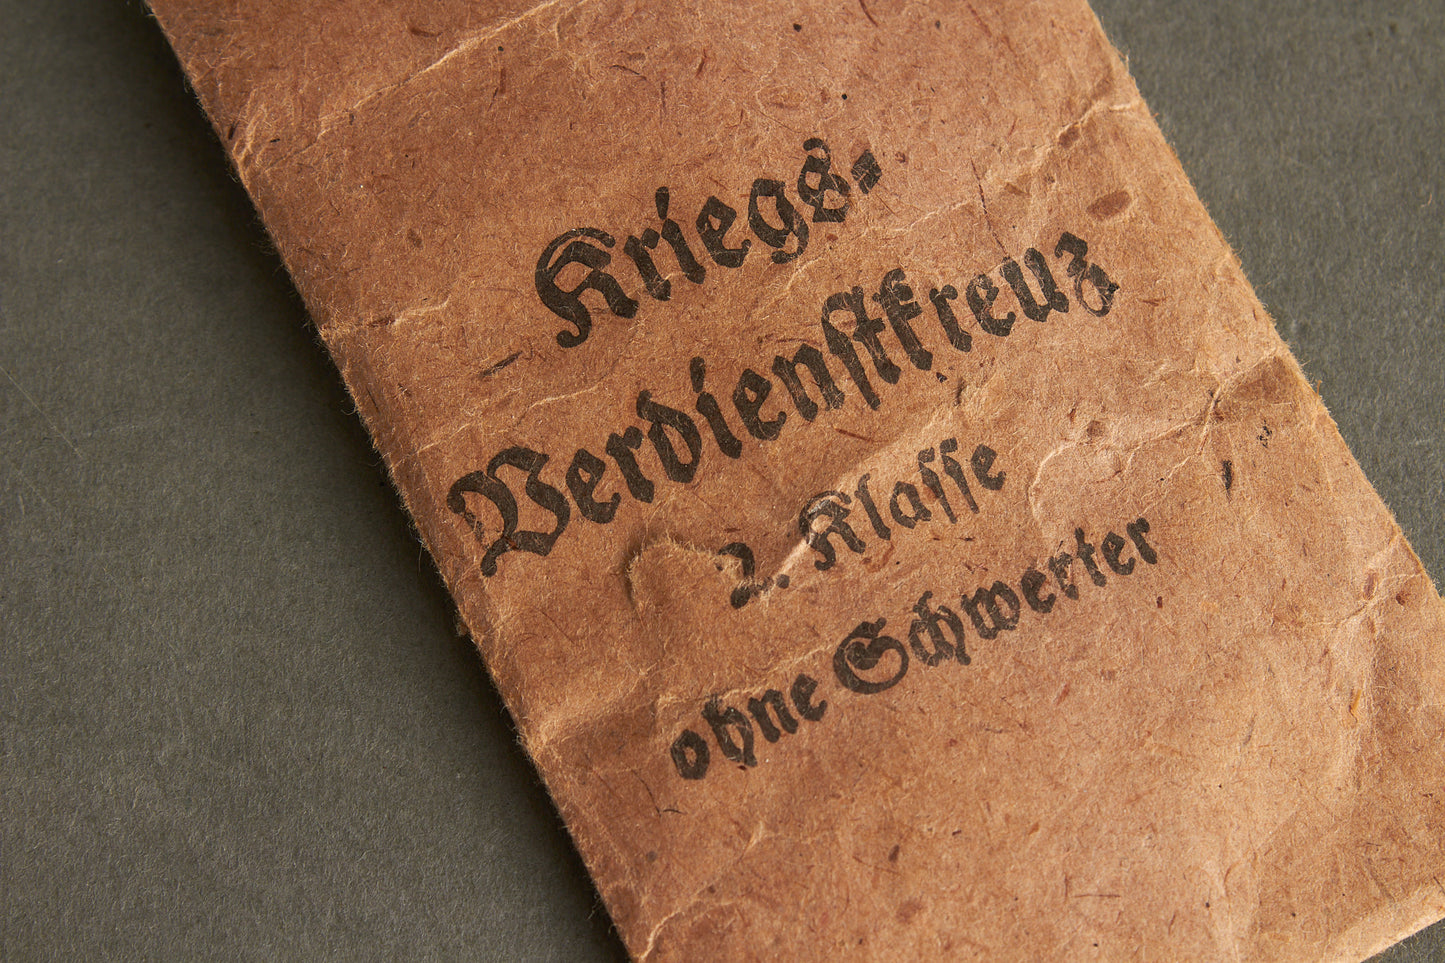 Kriegs-
Verdienstkreuz
2. Klasse
ohne Schwerter